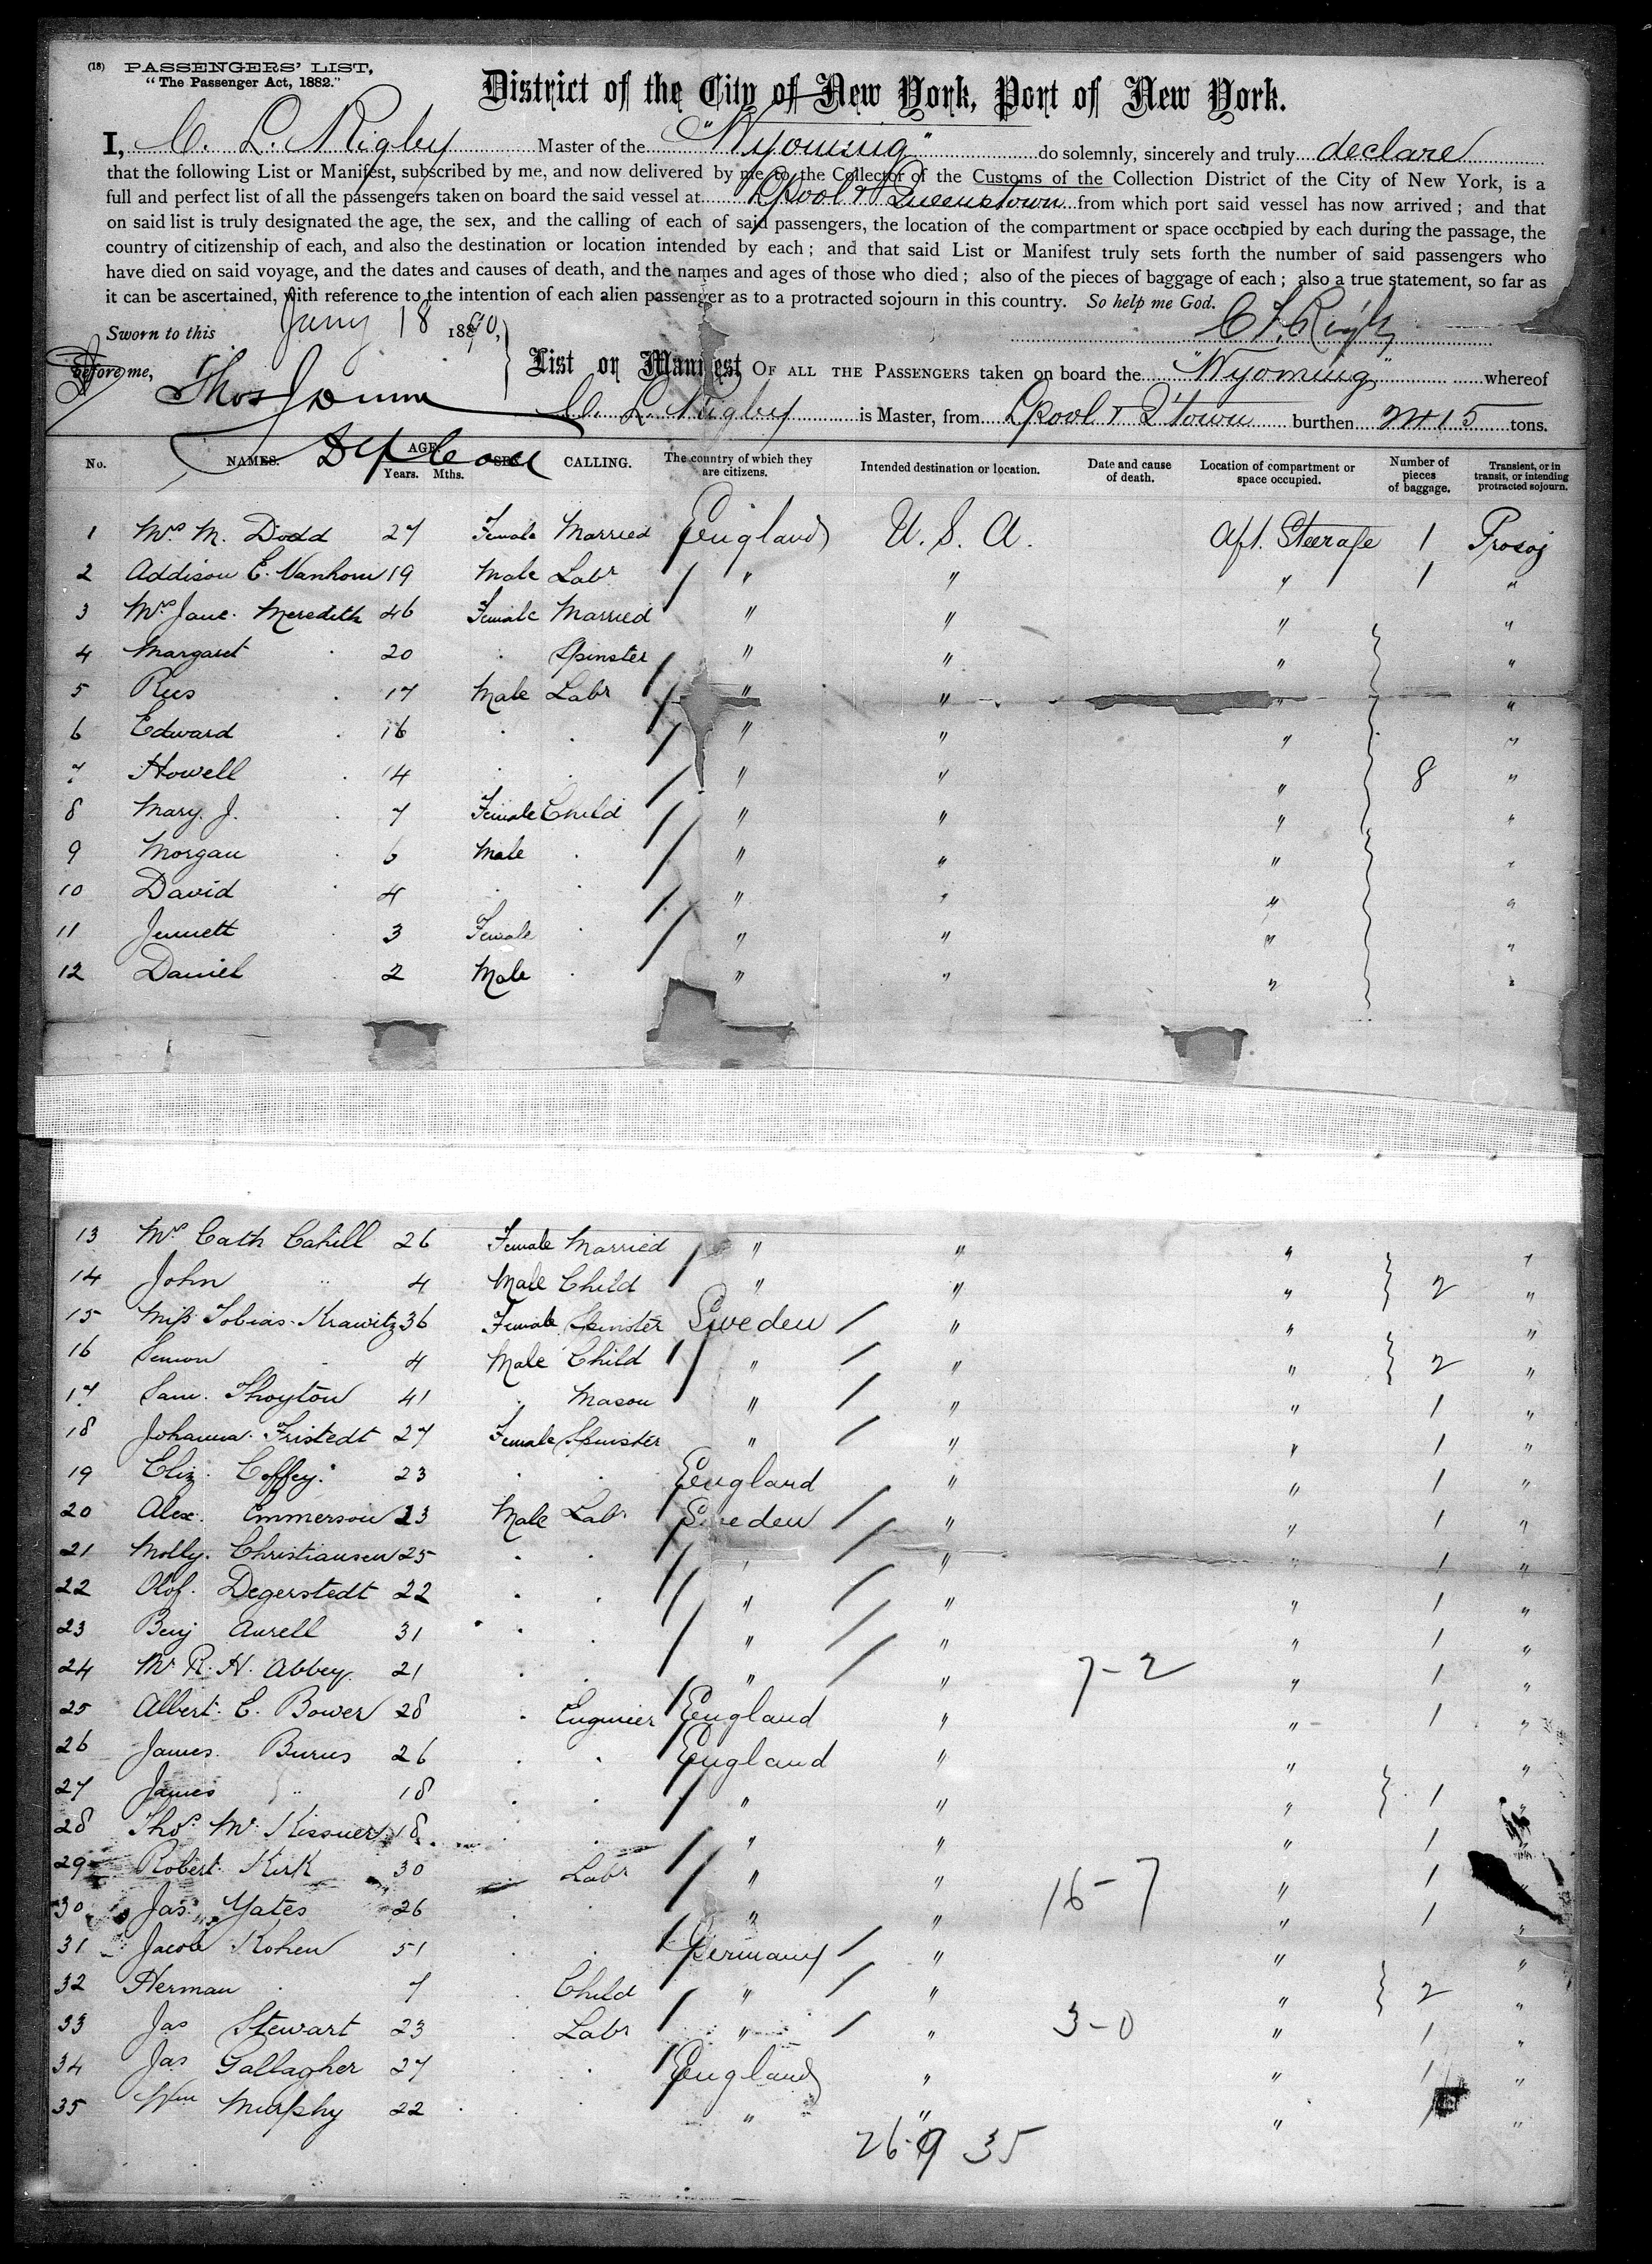 (18) PASSENGERS' LIST,
"The Passenger Act, 1882."
District of the City of New York, Port of New York.
I, C. L. Rigby Master of the "Wyoming" do solemnly, sincerely and truly declare
that the following List or Manifest, subscribed by me, and now delivered by me to the Collector of the Customs of the Collection District of the City of New York, is a
full and perfect list of all the passengers taken on board the said vessel at L'pool & Queenstown from which port said vessel has now arrived; and that
on said list is truly designated the age, the sex, and the calling of each of said passengers, the location of the compartment or space occupied by each during the passage, the
country of citizenship of each, and also the destination or location intended by each; and that said List or Manifest truly sets forth the number of said passengers who
have died on said voyage, and the dates and causes of death, and the names and ages of those who died; also of the pieces of baggage of each; also a true statement, so far as
it can be ascertained, with reference to the intention of each alien passenger as to a protracted sojourn in this country. So help me God.
Sworn to this Jany 18 1890, C L Rigby
before me, Thos
List or Manifest OF ALL THE PASSENGERS taken on board the "Wyoming" whereof
C. L. Rigby is Master, from L'pool & Q'town burthen 2415 tons.
No. NAMES. AGE Years. Mths. SEX. CALLING. The country of which they are citizens. Intended destination or location. Date and cause of death. Location of compartment or space occupied. Number of pieces of baggage. Transient, or in transit, or intending protracted sojourn.
1 Mrs M. Dodd 27 Female Married England U. S. A. Aft. Steerage 1 Prosoj
2 Addison E. Vanhorn 19 Male Labr " " " 1 "
3 Mrs Jane Meredith 46 Female Married " " " "
4 Margaret 20 Spinster " " " "
5 Rees 17 Male Labr " " " "
6 Edward 16 " " " "
7 Howell 14 " " " 8 "
8 Mary. J. 7 Female Child " " " "
9 Morgan 6 Male " " " "
10 David 4 " " " "
11 Jennett 3 Female " " " "
12 Daniel 2 Male " " " "
13 Mrs Cath Cahill 26 Female Married " " " "
14 John " 4 Male Child " " " 2 "
15 Miss Tobias Krawitz 36 Female Spinster Sweden " " "
16 Simon 4 Male Child " " " 2 "
17 Sam. Thoyton 41 Mason " " " 1 "
18 Johanna Fristedt 27 Female Spinster " " " 1 "
19 Eliz. Coffey 23 England " " 1 "
20 Alex. Emmerson 23 Male Labr Sweden " " 1 "
21 Molly. Christiansen 25 " " " 1 "
22 Olof. Degerstedt 22 " " " 1 "
23 Benj Aurell 31 " " " 1 "
24 Mr R. H. Abbey 21 " " 7-2 " 1 "
25 Albert. E. Bower 28 Engineer England " " 1 "
26 James. Burns 26 England " " "
27 James " 18 " " " 1 "
28 Thos Mc Kissner 18 " " " 1 "
29 Robert Kirk 30 Labr " " 16-7 " 1 "
30 Jas. Yates 26 " " " 1 "
31 Jacob Kohen 51 Germany " " "
32 Herman 7 Child " " " 2 "
33 Jas Stewart 23 Labr " " 3-0 " 1 "
34 Jas Gallagher 27 England " " 1 "
35 Wm Murphy 22 " " " 1 "
26-9 35